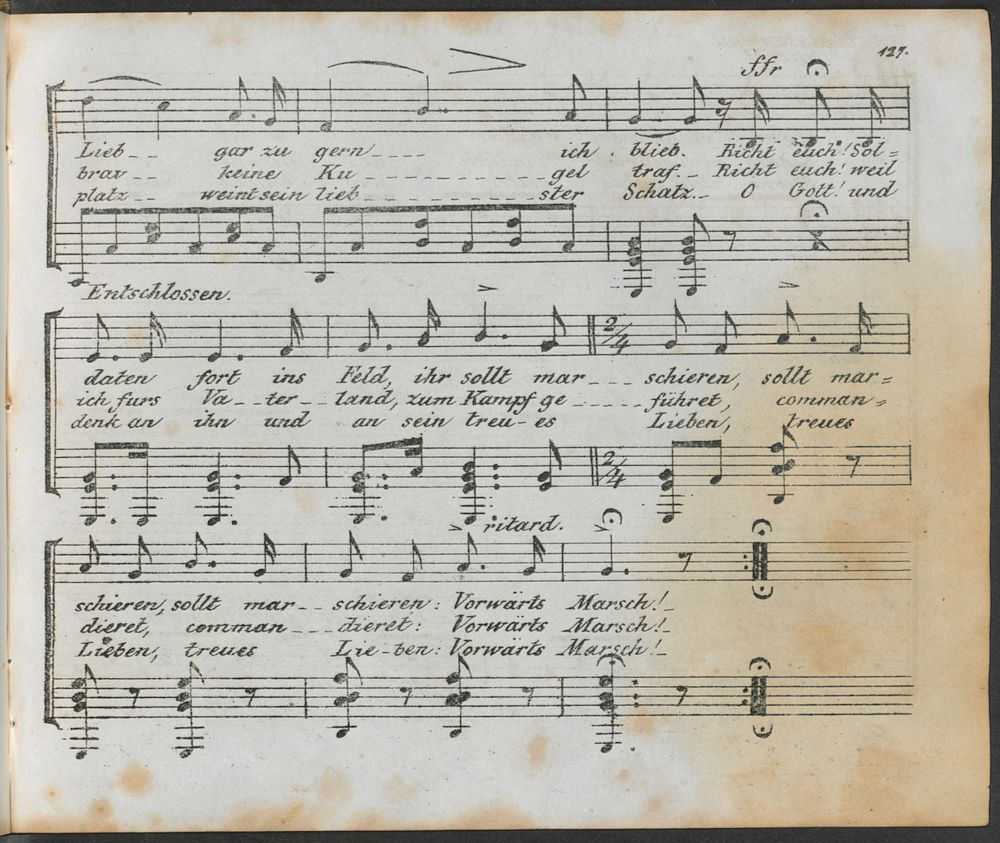 127.
ffr
Lieb - - gar zu gern - - - - ich blieb. Richt euch! Sol=
brav - - keine Ku - - - - - - - - - gel traf. - Richt euch! weil
platz - - weint sein lieb - - - - - - - - - ster Schatz. - O Gott! und
Entschlossen.
2/4
daten fort ins Feld, ihr sollt mar - - - schieren, sollt mar=
ich furs Va - - ter - - land, zum Kampf ge - - - - - führet, comman=
denk an ihn und an sein treu - es Lieben, treues
2/4
ritard.
schieren, sollt mar - - schieren: Vorwärts Marsch! -
dieret, comman - - - dieret: Vorwärts Marsch! -
Lieben, treues Lie - ben: Vorwärts Marsch! -